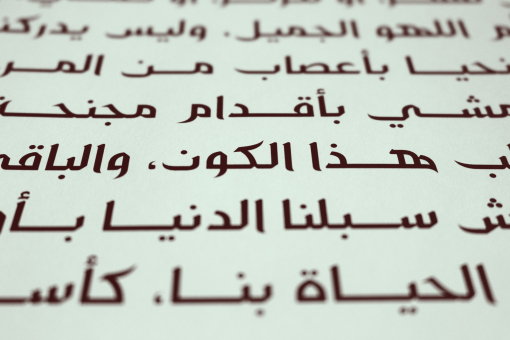 اللهو الجميل. وليس يدركنا
نحيا بأعصاب من المر
مشي بأقدام مجنحة
هذا الكون، والباقي
سبلنا الدنيا بأو
الحياة بنا، كأس